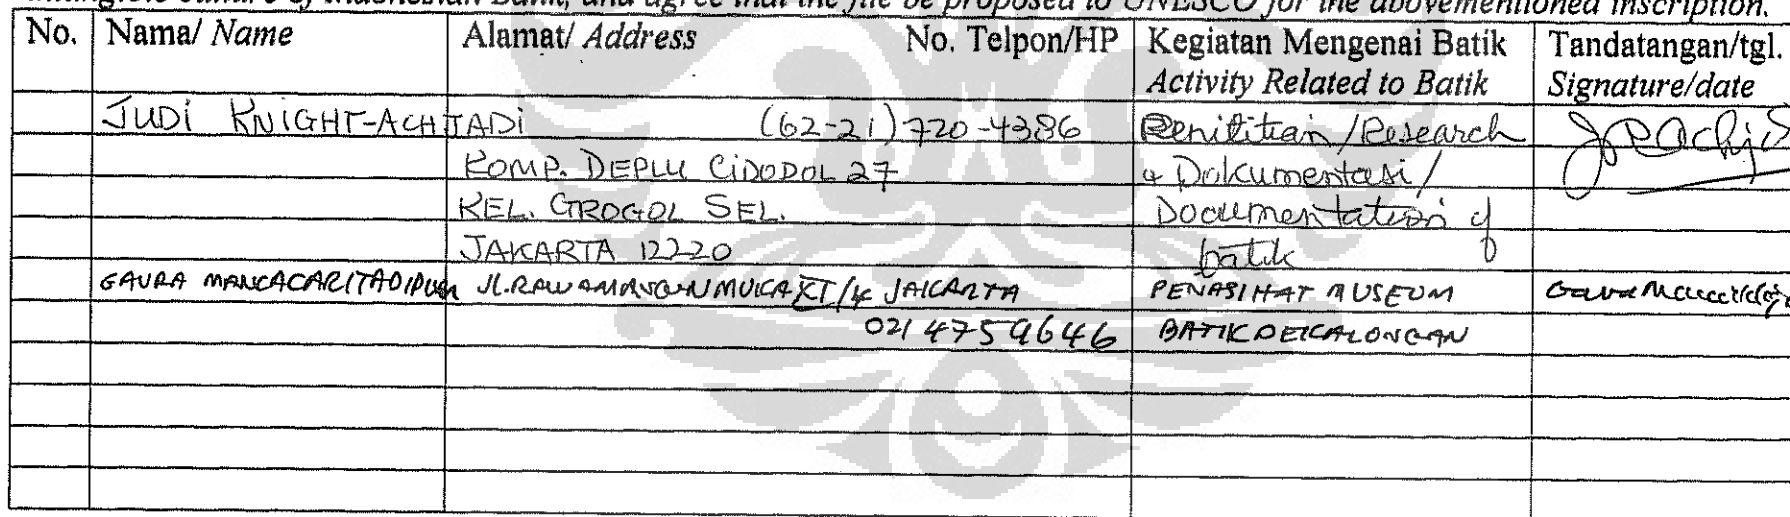 intangible culture of Indonesian Batik, and agree that the file be proposed to UNESCO for the abovementioned inscription.
No. Nama/ Name Alamat/ Address No. Telpon/HP Kegiatan Mengenai Batik Tandatangan/tgl.
Activity Related to Batik Signature/date
JUDI KNIGHT-ACHTJADI (62-21) 720-4386 Penilitian/Research
KOMP. DEPLU CIDODOL 27 & Dokumentasi/
KEL. GROGOL SEL. Documentation of
JAKARTA 12220 batik
GAURA MANCACARITADIPURA JL. RAWAMANGUN MUKA XI/4 JAKARTA PENASIHAT MUSEUM
021 4759646 BATIK PEKALONGAN